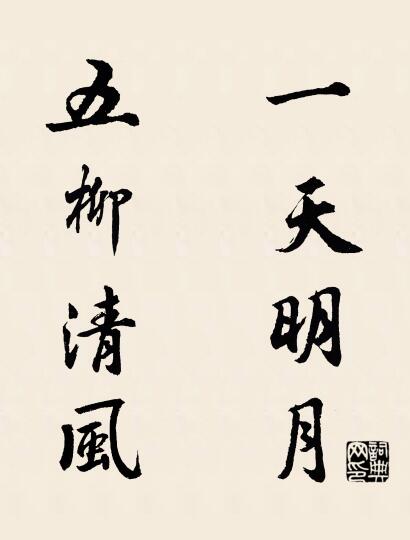 一天明月
五柳清風
詞典網印